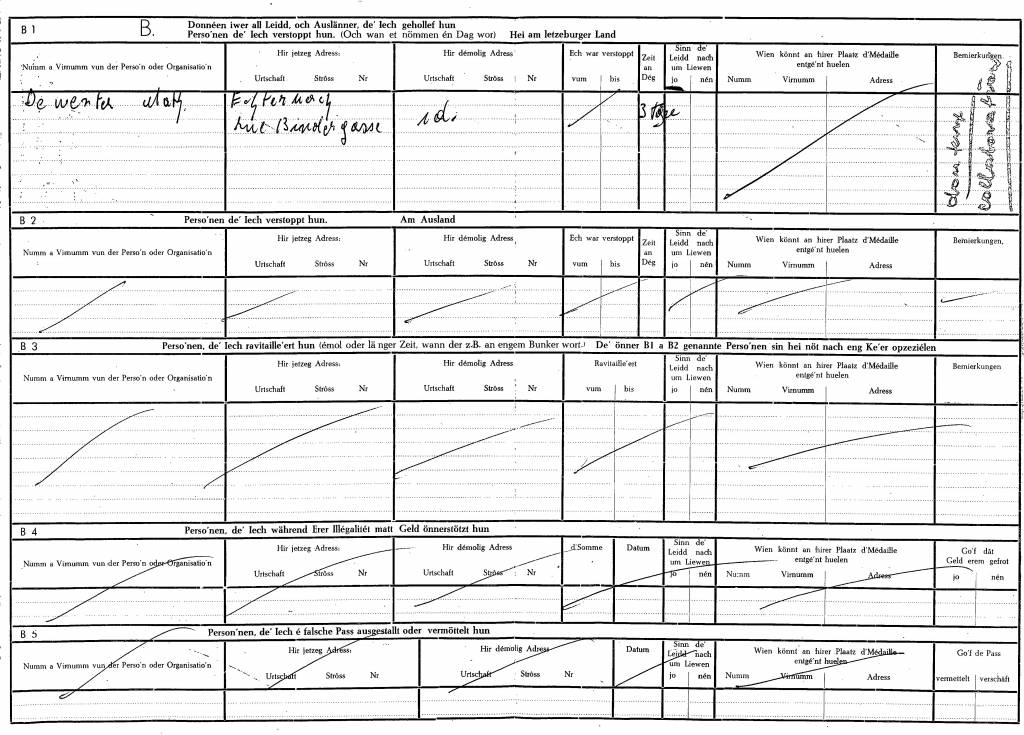 B 1 B. Donnéen iwer all Leidd, och Auslänner, de' Iech gehollef hun
Perso'nen de' Iech verstoppt hun. (Och wan et nömmen én Dag wor) Hei am letzeburger Land
Numm a Virnumm vun der Perso'n oder Organisatio'n
Hir jetzeg Adress:
Urtschaft Ströss Nr
Hir démolig Adress
Urtschaft Ströss Nr
Ech war verstoppt
vum bis
Zeit
an
Dég
Sinn de'
Leidd nach
um Liewen
jo nén
Wien könnt an hirer Plaatz d'Médaille
entgé'nt huelen
Numm Virnumm Adress
Bemierkungen
De wenter
Echternach
rue Bindergasse
id.
3 täge
B 2 Perso'nen de' Iech verstoppt hun. Am Ausland
Numm a Virnumm vun der Perso'n oder Organisatio'n
Hir jetzeg Adress:
Urtschaft Ströss Nr
Hir démolig Adress
Urtschaft Ströss Nr
Ech war verstoppt
vum bis
Zeit
an
Dég
Sinn de'
Leidd nach
um Liewen
jo nén
Wien könnt an hirer Plaatz d'Médaille
entgé'nt huelen
Numm Virnumm Adress
Bemierkungen,
B 3 Perso'nen, de' Iech ravitaille'ert hun (émol oder länger Zeit, wann der z.B. an engem Bunker wort.) De' önner B1 a B2 genannte Perso'nen sin hei nöt nach eng Ke'er opzeziélen
Numm a Virnumm vun der Perso'n oder Organisatio'n
Hir jetzeg Adress:
Urtschaft Ströss Nr
Hir démolig Adress
Urtschaft Ströss Nr
Ravitaille'ert
vum bis
Sinn de'
Leidd nach
um Liewen
jo nén
Wien könnt an hirer Plaatz d'Médaille
entgé'nt huelen
Numm Virnumm Adress
Bemierkungen
B 4 Perso'nen, de' Iech während Erer Illégalitét matt Geld önnerstötzt hun
Numm a Virnumm vun der Perso'n oder Organisatio'n
Hir jetzeg Adress:
Urtschaft Ströss Nr
Hir démolig Adress
Urtschaft Ströss Nr
d'Somme
Datum
Sinn de'
Leidd nach
um Liewen
jo nén
Wien könnt an hirer Plaatz d'Médaille
entgé'nt huelen
Numm Virnumm Adress
Go'f dât
Geld erem gefrot
jo nén
B 5 Person'nen, de' Iech é falsche Pass ausgestallt oder vermöttelt hun
Numm a Virnumm vun der Perso'n oder Organisatio'n
Hir jetzeg Adress:
Urtschaft Ströss Nr
Hir démolig Adress
Urtschaft Ströss Nr
Datum
Sinn de'
Leidd nach
um Liewen
jo nén
Wien könnt an hirer Plaatz d'Médaille
entgé'nt huelen
Numm Virnumm Adress
Go'f de Pass
vermettelt verschäft